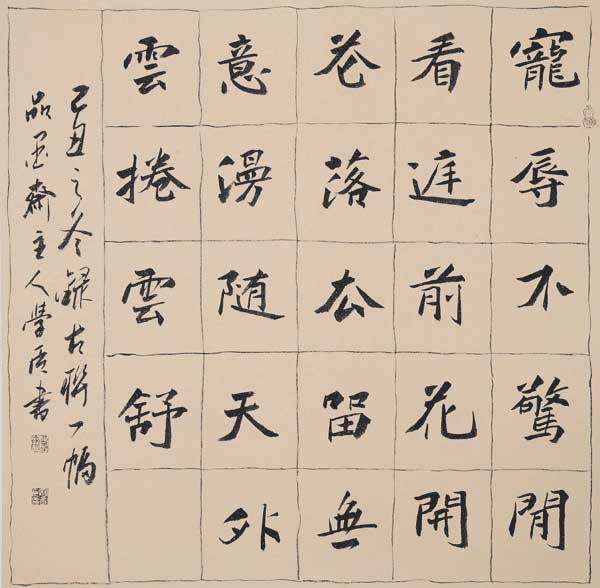 寵辱不驚閒
看庭前花開
花落去留無
意漫随天外
雲捲雲舒
己丑之冬録古聯一幅
品墨齋主人學書